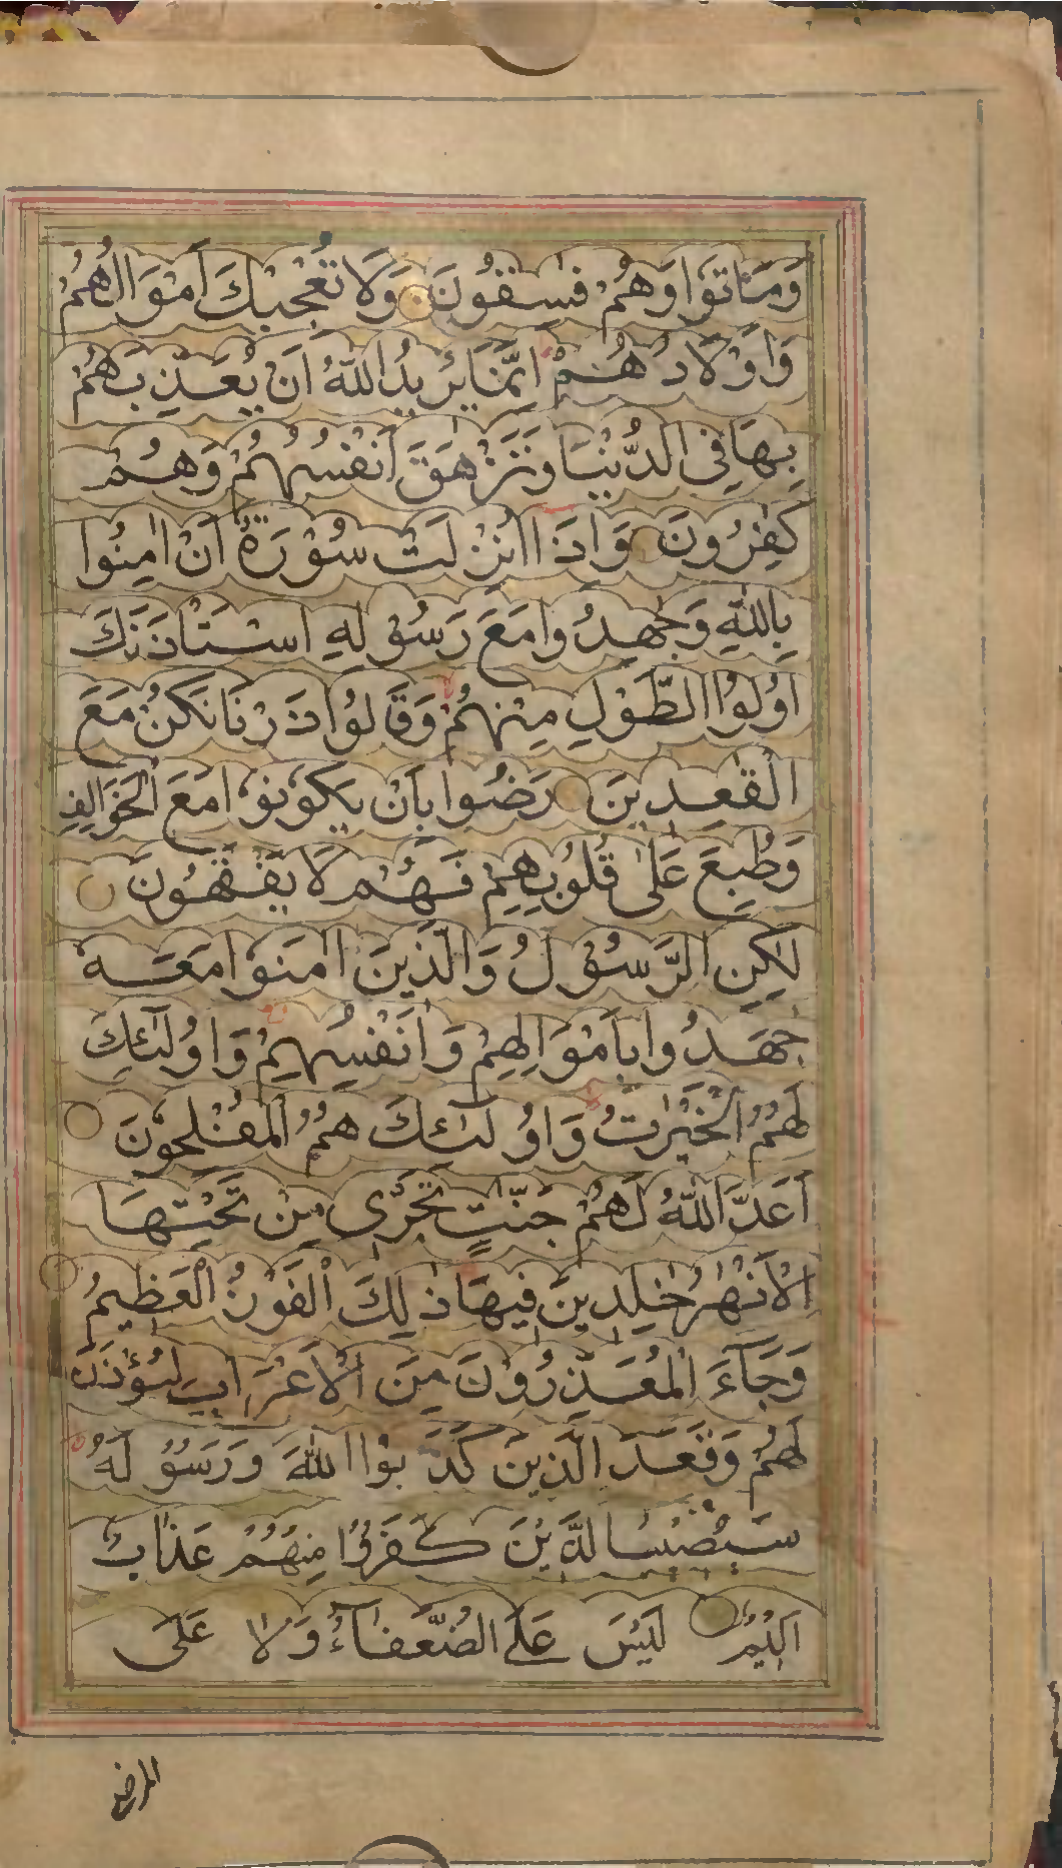 وَمَاتُوْا وَهُمْ فٰسِقُوْنَ وَلَا تُعْجِبْكَ اَمْوَالُهُمْ
وَاَوْلَادُهُمْ اِنَّمَا يُرِيْدُ اللّٰهُ اَنْ يُّعَذِّبَهُمْ
بِهَا فِى الدُّنْيَا وَتَزْهَقَ اَنْفُسُهُمْ وَهُمْ
كٰفِرُوْنَ وَاِذَا اُنْزِلَتْ سُوْرَةٌ اَنْ اٰمِنُوْا
بِاللّٰهِ وَجٰهِدُوْا مَعَ رَسُوْلِهِ اسْتَاْذَنَكَ
اُولُوا الطَّوْلِ مِنْهُمْ وَقَالُوْا ذَرْنَا نَكُنْ مَعَ
الْقٰعِدِيْنَ رَضُوْا بِاَنْ يَكُوْنُوْا مَعَ الْخَوَالِفِ
وَطُبِعَ عَلٰى قُلُوْبِهِمْ فَهُمْ لَا يَفْقَهُوْنَ
لٰكِنِ الرَّسُوْلُ وَالَّذِيْنَ اٰمَنُوْا مَعَهٗ
جٰهَدُوْا بِاَمْوَالِهِمْ وَاَنْفُسِهِمْ وَاُولٰٓئِكَ
لَهُمُ الْخَيْرٰتُ وَاُولٰٓئِكَ هُمُ الْمُفْلِحُوْنَ
اَعَدَّ اللّٰهُ لَهُمْ جَنّٰتٍ تَجْرِىْ مِنْ تَحْتِهَا
الْاَنْهٰرُ خٰلِدِيْنَ فِيْهَا ذٰلِكَ الْفَوْزُ الْعَظِيْمُ
وَجَآءَ الْمُعَذِّرُوْنَ مِنَ الْاَعْرَابِ لِيُؤْذَنَ
لَهُمْ وَقَعَدَ الَّذِيْنَ كَذَبُوا اللّٰهَ وَرَسُوْلَهٗ
سَيُصِيْبُ الَّذِيْنَ كَفَرُوْا مِنْهُمْ عَذَابٌ
اَلِيْمٌ لَيْسَ عَلَى الضُّعَفَآءِ وَلَا عَلَى
المرضى